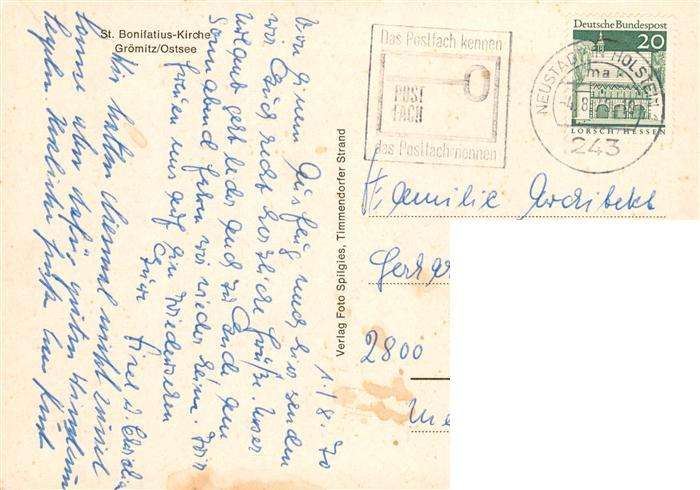 St. Bonifatius-Kirche
Grömitz/Ostsee
Das Postfach kennen
POST
FACH
das Postfach nennen
Deutsche Bundespost
20
LORSCH/HESSEN
NEUSTADT IN HOLSTEIN
243
Verlag Foto Spilgies, Timmendorfer Strand
Familie Architekt
2800
1./8. 70
Von einem Ausflug nach hier senden
wir Euch recht herzliche Grüße. Unser
Urlaub geht leider auch zu Ende am
Sonnabend fahren wir wieder heim. Wir
freuen uns auf ein Wiedersehen
Eure
Wir hatten diesmal nicht zuviel
Sonne aber dafür guten Wind zum
Segeln. Herzliche Grüße